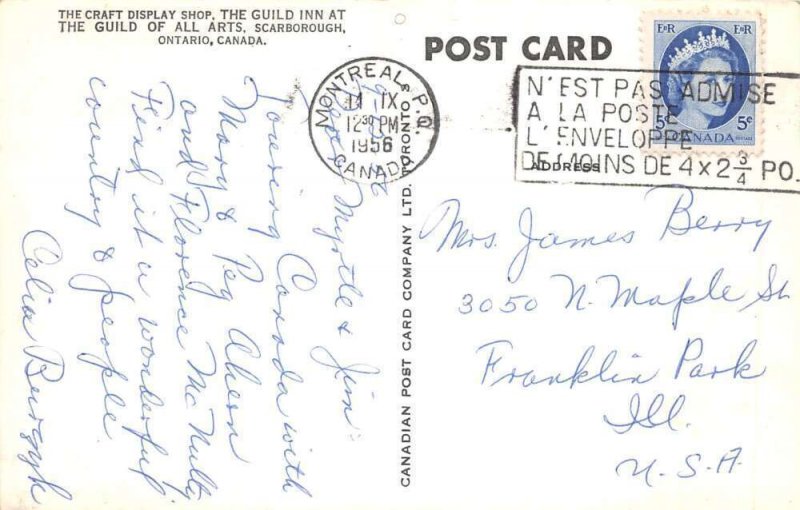 THE CRAFT DISPLAY SHOP, THE GUILD INN AT
THE GUILD OF ALL ARTS, SCARBOROUGH,
ONTARIO, CANADA.
POST CARD
MONTREAL P.Q.
11 IX
12 30 PM
1956
CANADA
E R E R
5c 5c
CANADA
N'EST PAS ADMISE
A LA POSTE
L'ENVELOPPE
DE MOINS DE 4 x 2 3/4 PO.
ADDRESS
CANADIAN POST CARD COMPANY LTD. TORONTO
Dear Myrtle & Jim
Touring Canada with
Mary & Peg Ahern
and Florence McNulty
Find it a wonderful
country & people
Celia
Mrs. James Berry
3050 N. Maple St
Franklin Park
Ill.
U.S.A.